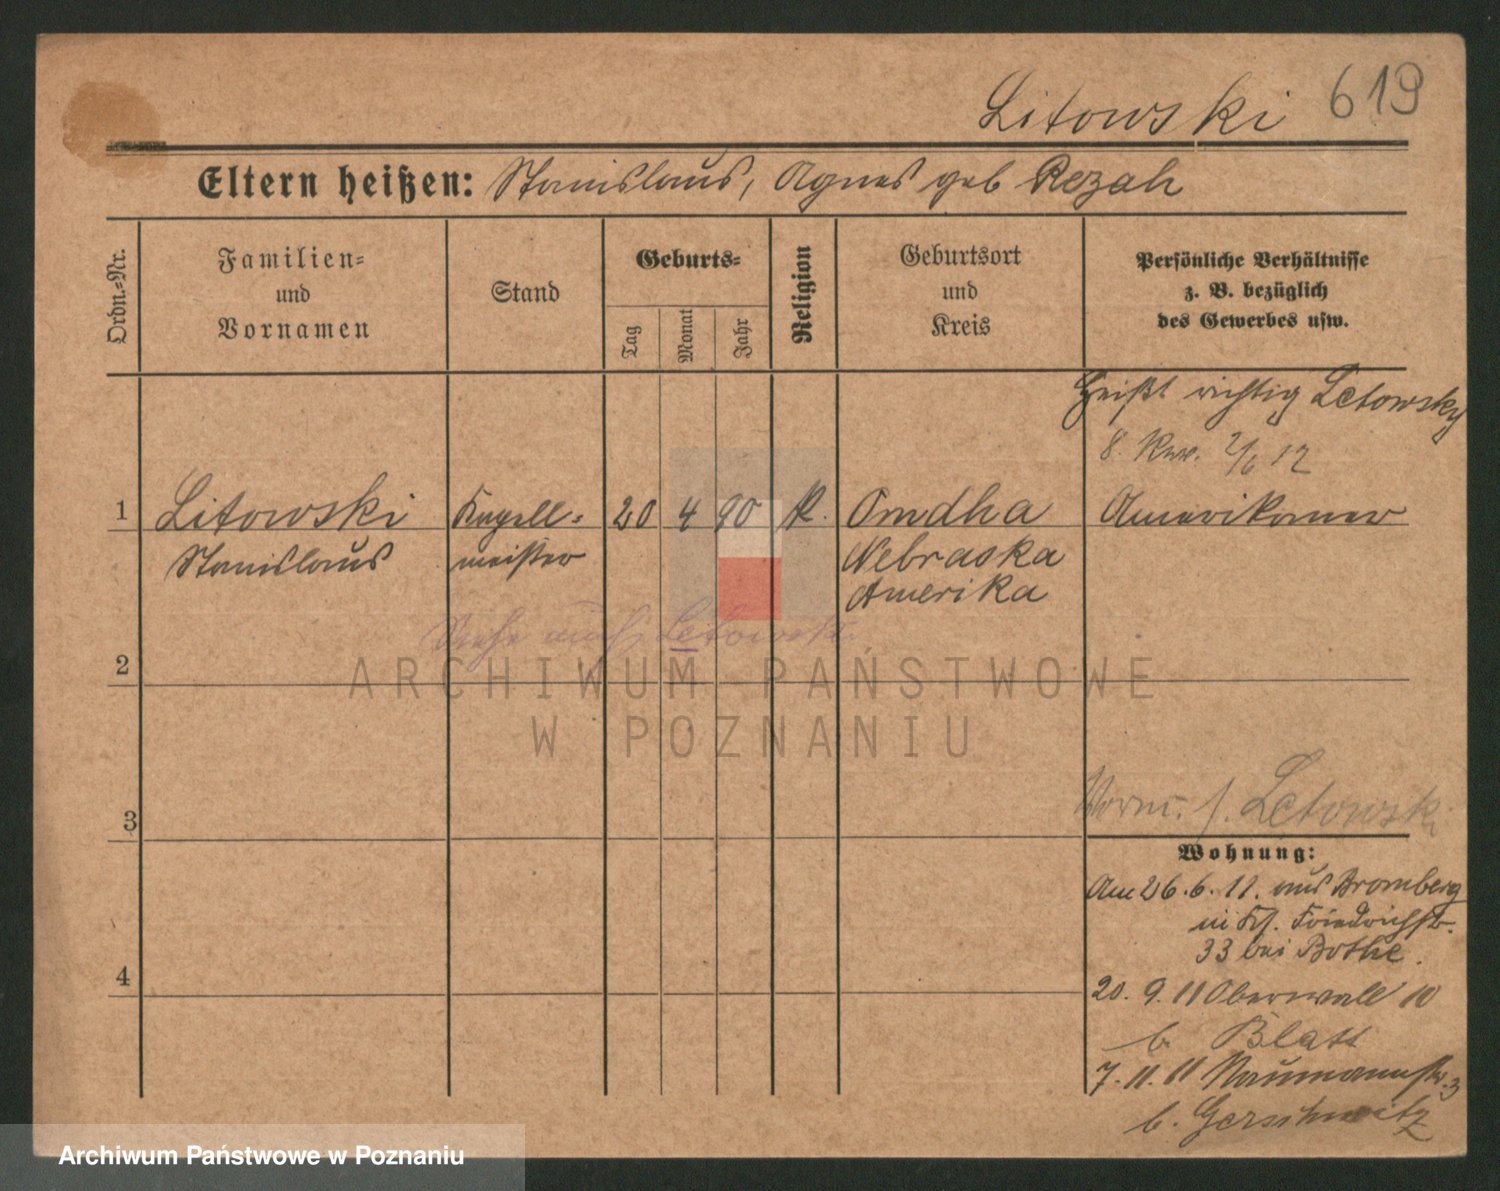 Litowski 619
Eltern heißen: Stanislaus, Agnes geb Rezah
Ordn.-Nr.
Familien-
und
Vornamen
Stand
Geburts-
Tag
Monat
Jahr
Religion
Geburtsort
und
Kreis
Persönliche Verhältnisse
z. B. bezüglich
des Gewerbes usw.
Heißt richtig Letowsky
8. 2/6 12
1 Litowski Kapell- 20 4 90 K. Omdha Amerikaner
Stanislaus meister Nebraska
Amerika
Siehe auch Letowski
2
ARCHIWUM PAŃSTWOWE
W POZNANIU
3
Verm. f. Letowski
Wohnung:
Am 26.6.11. aus Bromberg
in Friedrichstr.
33 bei Bothe.
4
20. 9. 11 Oberwall 10
b. Blatt
7. 11. 11 Naumannstr. 3
b. Gerschwitz
Archiwum Państwowe w Poznaniu